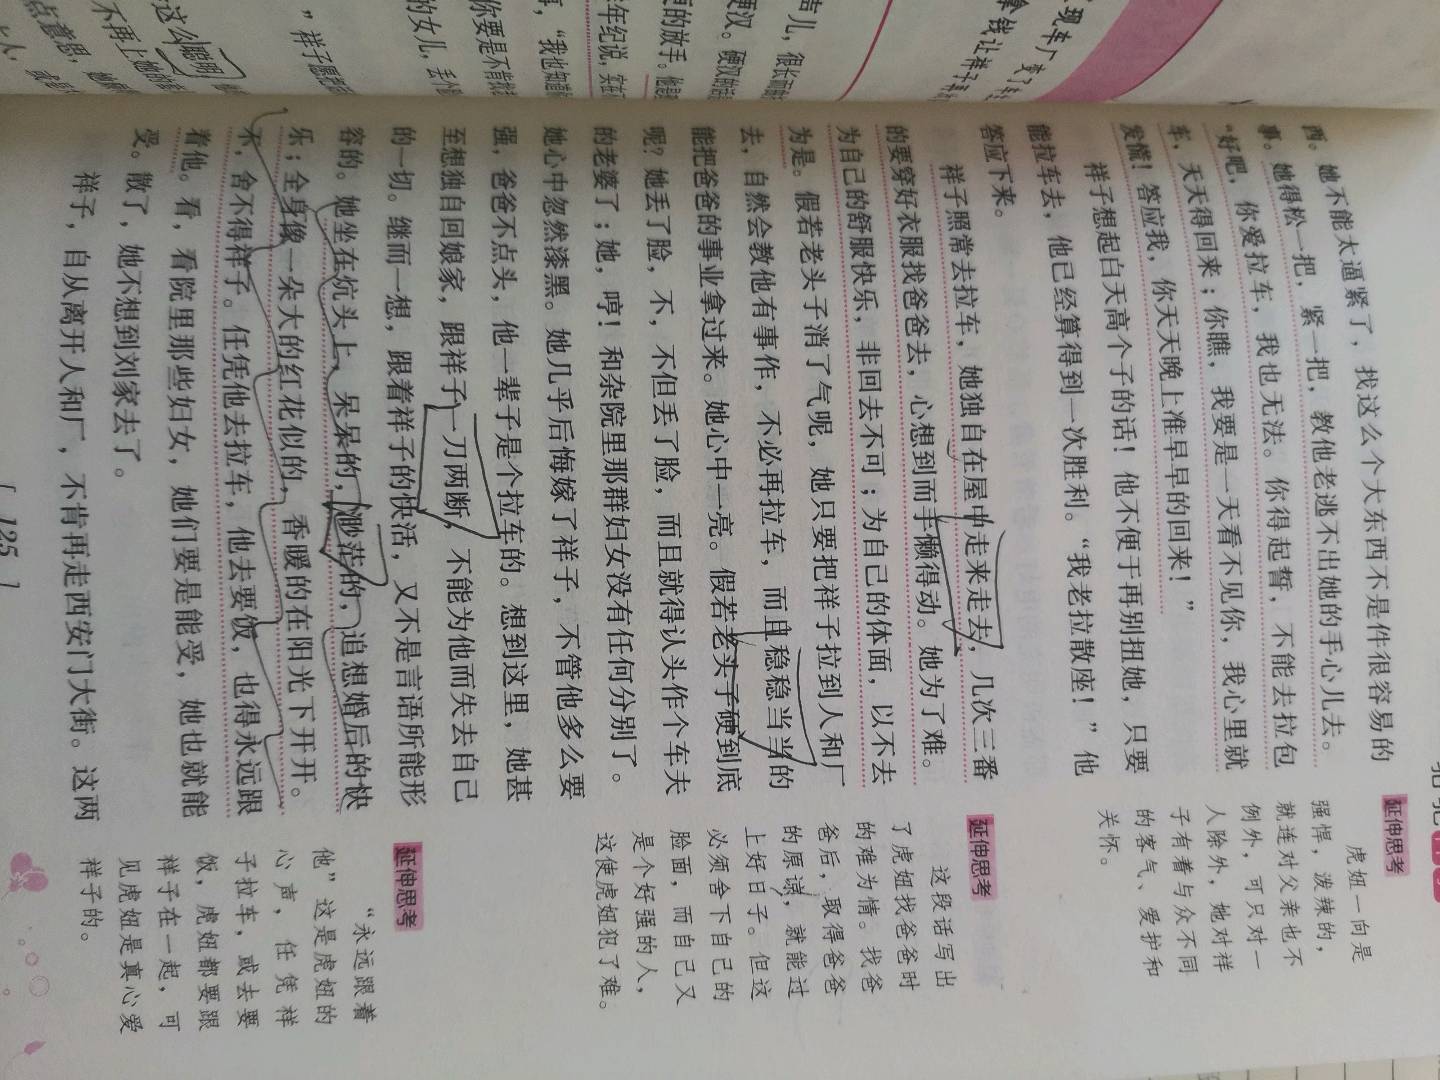 西。她不能太逼紧了，找这么个大东西不是件很容易的
事。她得松一把，紧一把，教他老逃不出她的手心儿去。
“好吧，你爱拉车，我也无法。你得起誓，不能去拉包
车，天天得回来；你瞧，我要是一天看不见你，我心里就
发慌！答应我，你天天晚上准早早的回来！”
祥子想起白天高个子的话！他不便于再别扭她，只要
能拉车去，他已经算得到一次胜利。“我老拉散座！”他
答应下来。
祥子照常去拉车，她独自在屋中走来走去，几次三番
的要穿好衣服找爸爸去，心想到而手懒得动。她为了难。
为自己的舒服快乐，非回去不可；为自己的体面，以不去
为是。假若老头子消了气呢，她只要把祥子拉到人和厂
去，自然会教他有事作，不必再拉车，而且稳稳当当的
能把爸爸的事业拿过来。她心中一亮。假若老头子硬到底
呢？她丢了脸，不，不但丢了脸，而且就得认头作个车夫
的老婆了；她，哼！和杂院里那群妇女没有任何分别了。
她心中忽然漆黑。她几乎后悔嫁了祥子，不管他多么要
强，爸爸不点头，他一辈子是个拉车的。想到这里，她甚
至想独自回娘家，跟祥子一刀两断，不能为他而失去自己
的一切。继而一想，跟着祥子的快活，又不是言语所能形
容的。她坐在炕头上，呆呆的，渺茫的，追想婚后的快
乐；全身像一朵大的红花似的，香暖的在阳光下开开。
不，舍不得祥子。任凭他去拉车，他去要饭，也得永远跟
着他。看，看院里那些妇女，她们要是能受，她也就能
受。散了，她不想到刘家去了。
祥子，自从离开人和厂，不肯再走西安门大街。这两
延伸思考
虎妞一向是
强悍，泼辣的，
就连对父亲也不
例外，可只对一
人除外，她对祥
子有着与众不同
的客气、爱护和
关怀。
延伸思考
这段话写出
了虎妞找爸爸时
的难为情。找爸
爸后，取得爸爸
的原谅，就能过
上好日子。但这
必须舍下自己的
脸面，而自己又
是个好强的人，
这使虎妞犯了难。
延伸思考
“永远跟着
他”这是虎妞的
心声，任凭祥
子拉车，或去要
饭，虎妞都要跟
祥子在一起，可
见虎妞是真心爱
祥子的。
[ 125 ]